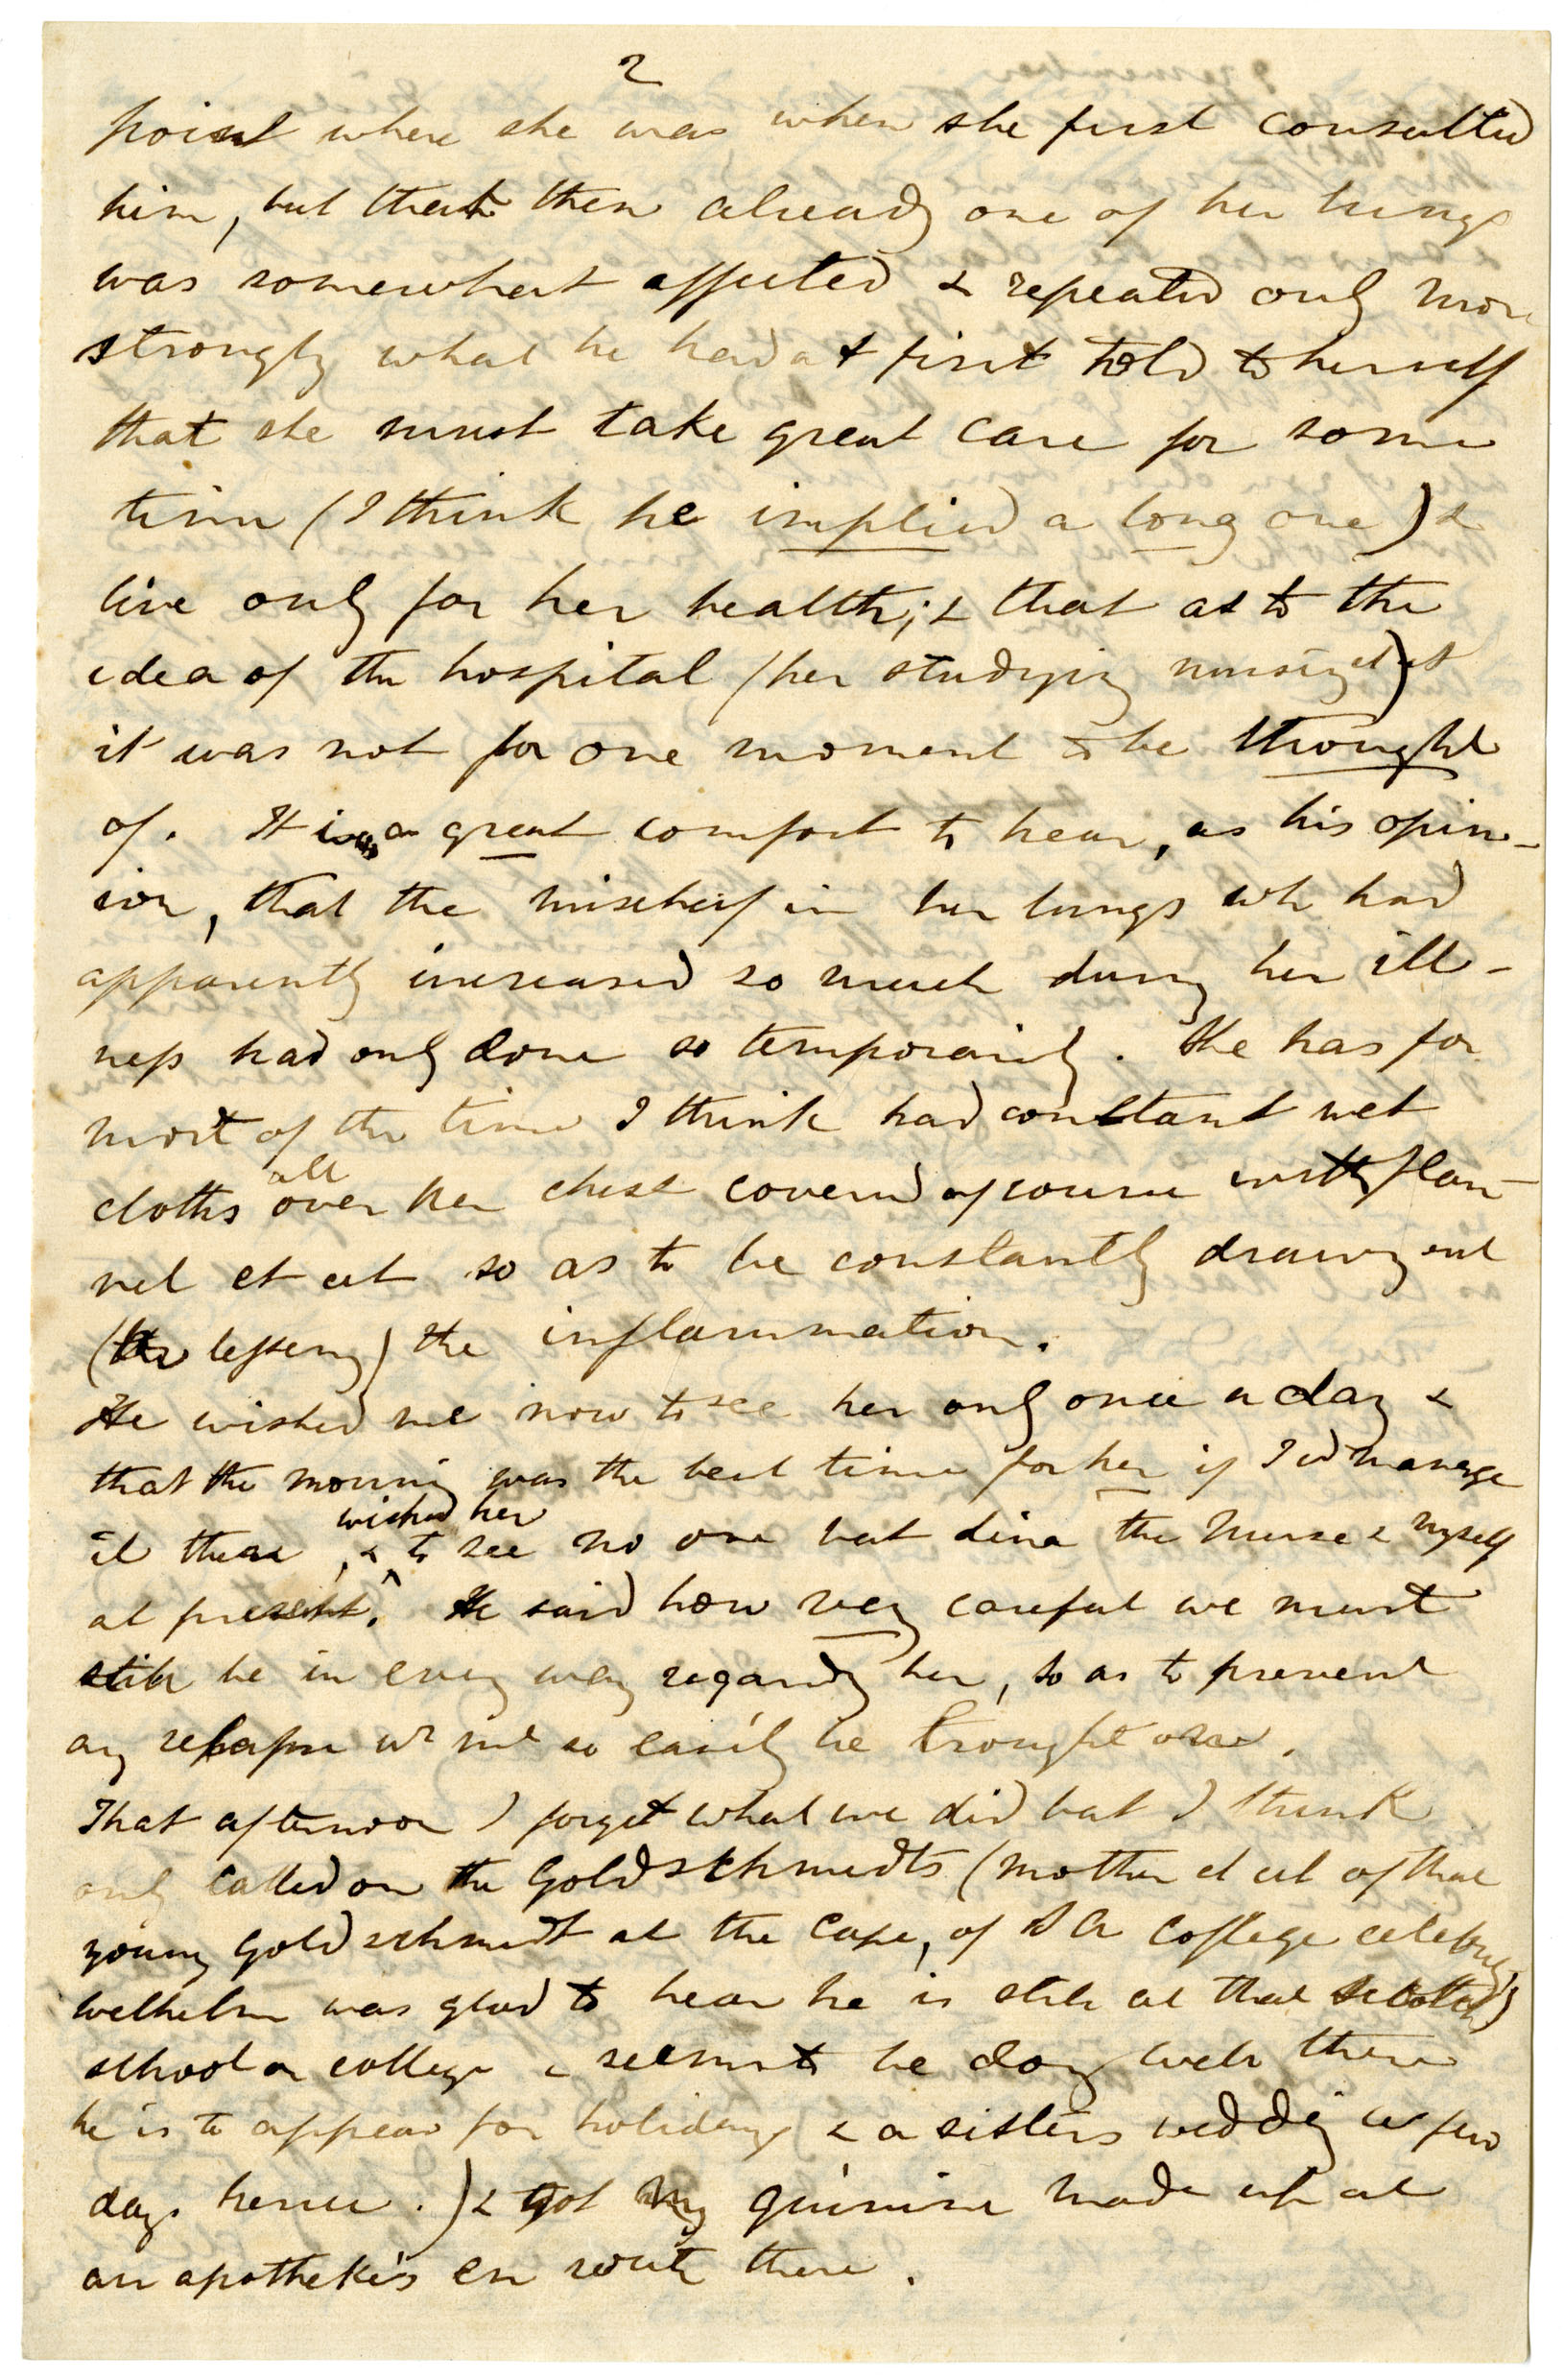 2
point where she was when she first consulted
him, but that then already one of her lungs
was somewhat affected & repeated only more
strongly what he had at first told to herself
that she must take great care for some
time (I think he implied a long one) &
live only for her health; & that as to the
idea of the hospital (her studying nursing et ct)
it was not for one moment to be thought
of. It was a great comfort to hear, as his opin-
ion, that the mischeif in her lungs wh had
apparently increased so much during her ill-
ness had only done so temporarily. She has for
most of the time I think had constant wet
cloths all over her chest covered of course with flan-
nel et cet so as to be constantly drawing out
(lessening) the inflammation.
He wished me now to see her only once a day &
that the morning was the best time for her if I cd manage
it then, & wished her to see no one but Lina the Nurse & myself
at present. He said how very careful we must
still be in every way regardg her, so as to prevent
any relapse wh mt so easily be brought on.
That afternoon I forget what we did but I think
only called on the Goldschmidts (mother et cet of that
young Goldschmidt at the Cape, of S A College celebrity
Welhelm was glad to hear he is still at that
school or college & seems to be doing well there
he is to appear for holidays & a sisters wedding a few
days hence.) & got my quinine made up at
an apothekes en route there.